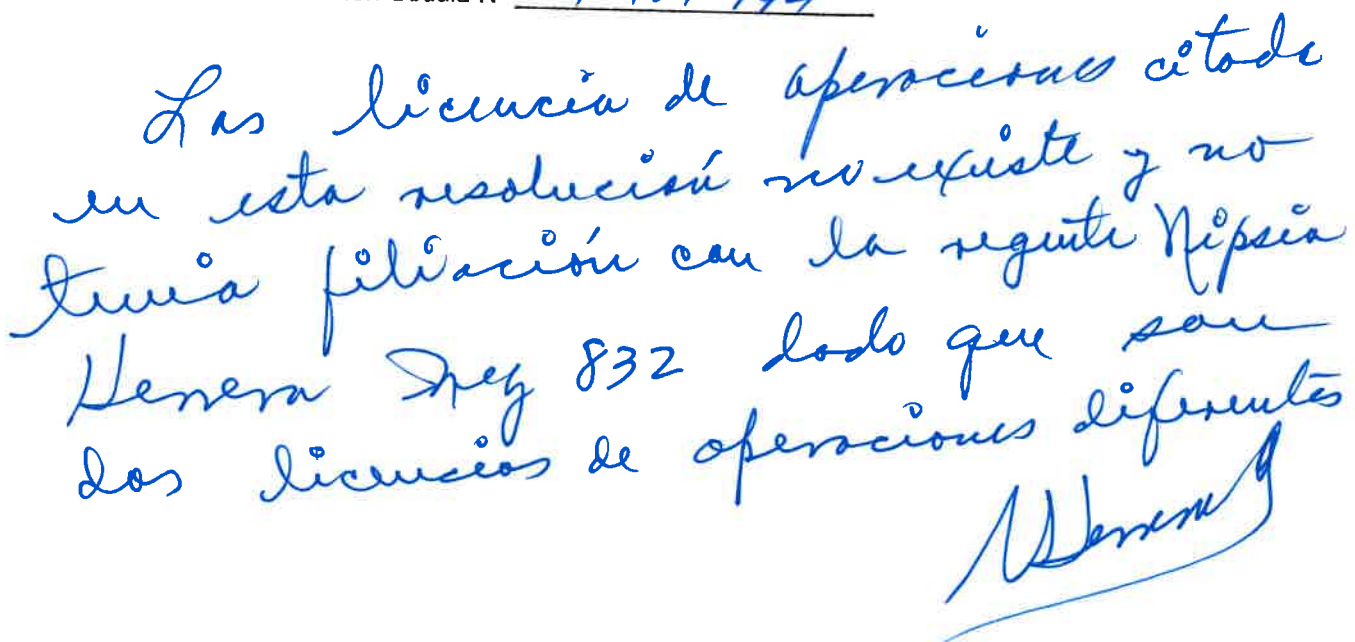 Las licencia de operaciones citada
en esta resolución no existe y no
tenia filiación con la regente Nipsia
Herrera Reg 832 dado que son
dos licencias de operaciones diferentes
NHerrera